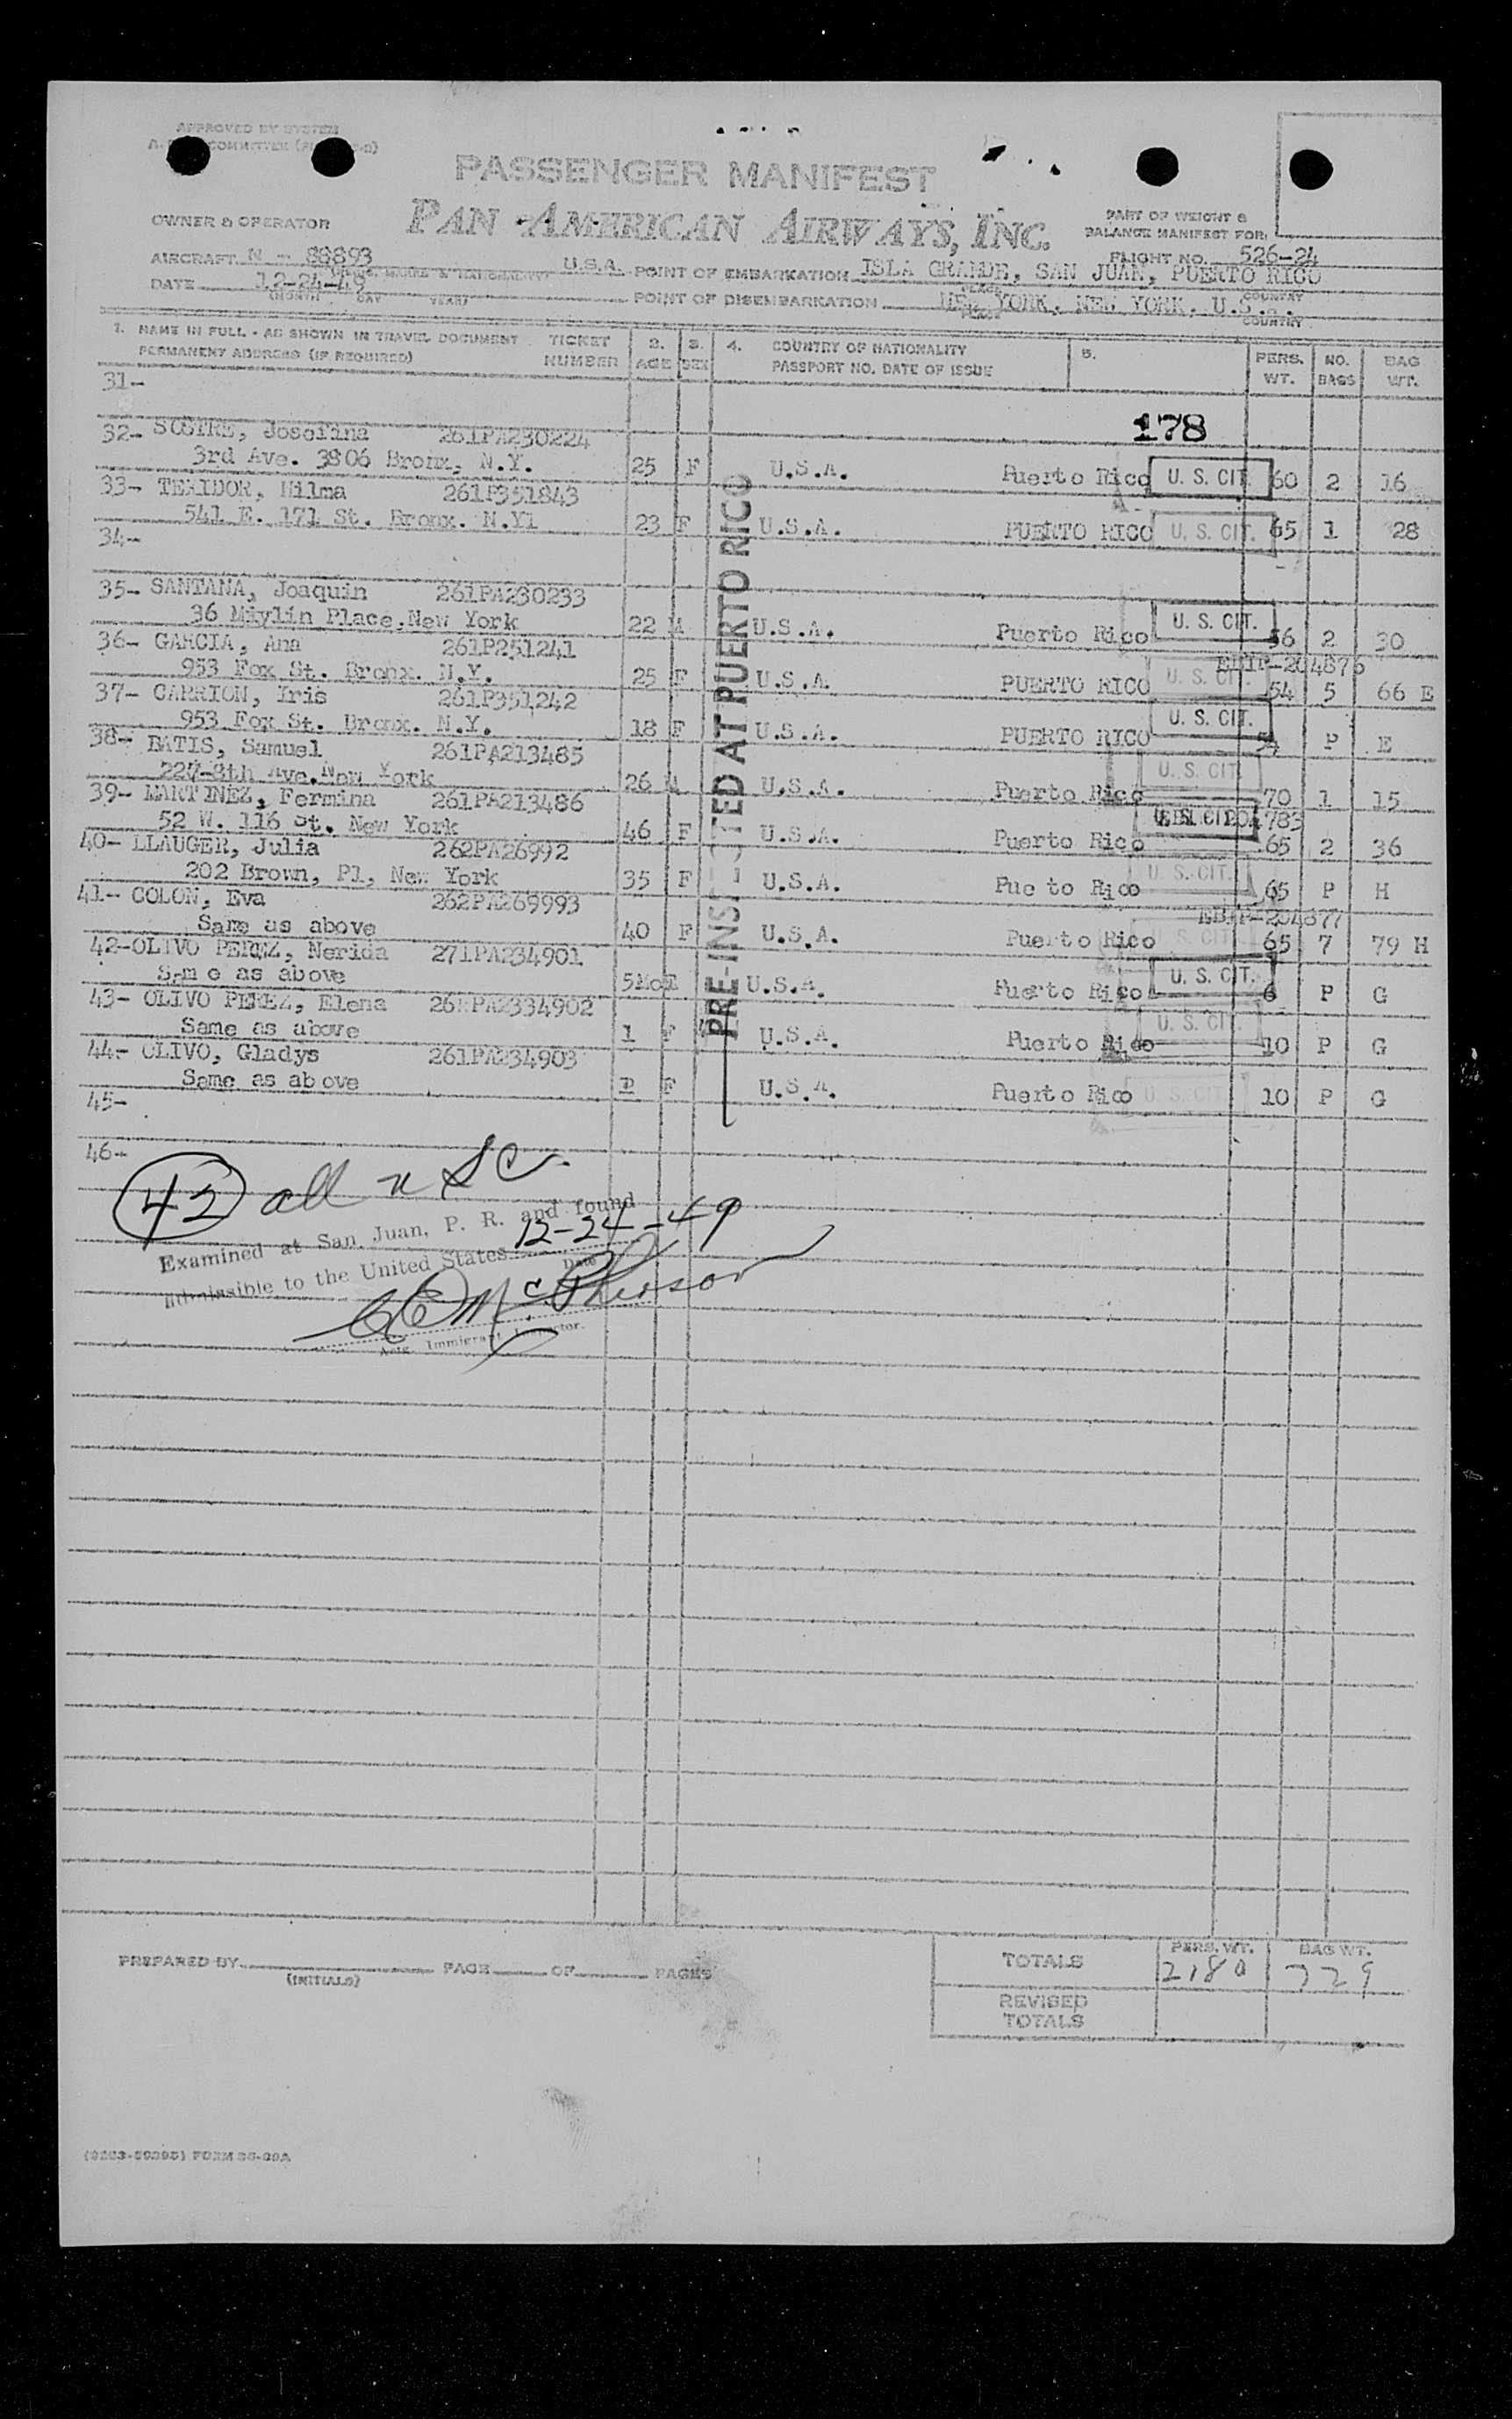 APPROVED BY SYSTEM
COMMITTEE
PASSENGER MANIFEST
OWNER & OPERATOR PAN AMERICAN AIRWAYS, INC.
PART OF WEIGHT &
BALANCE MANIFEST FOR:
AIRCRAFT N - 88893 U.S.A. POINT OF EMBARKATION ISLA GRANDE, SAN JUAN, PUERTO RICO
FLIGHT NO. 526-24
DATE 12-24-49 POINT OF DISEMBARKATION NEW YORK, NEW YORK, U.S.A.
(MONTH DAY YEAR) PLACE COUNTRY
1. NAME IN FULL - AS SHOWN IN TRAVEL DOCUMENT TICKET 2. 3. 4. COUNTRY OF NATIONALITY 5. PERS. NO. BAG
PERMANENT ADDRESS (IF REQUIRED) NUMBER AGE SEX PASSPORT NO. DATE OF ISSUE WT. BAGS WT.
31-
178
32- SOSTRE, Josefina 261PA230224
3rd Ave. 3806 Bronx, N.Y. 25 F U.S.A. Puerto Rico U. S. CIT. 60 2 16
33- TERIDOR, Wilma 261P351843
541 E. 171 St. Bronx. N.Y1 23 F U.S.A. PUERTO RICO U. S. CIT. 65 1 28
34-
35- SANTANA, Joaquin 261PA230233
36 Miylin Place, New York 22 M U.S.A. Puerto Rico U. S. CIT. 56 2 30
36- GARCIA, Ana 261P251241
953 Fox St. Bronx. N.Y. 25 F U.S.A. PUERTO RICO U. S. CIT. 54 5 66 E
37- CARRION, Iris 261P351242
953 Fox St. Bronx. N.Y. 18 F U.S.A. PUERTO RICO U. S. CIT. 54 P E
38- BATIS, Samuel 261PA213485
227-8th Ave. New York 26 M U.S.A. Puerto Rico U. S. CIT. 70 1 15
39- MARTINEZ, Fermina 261PA213486
52 W. 116 St. New York 46 F U.S.A. Puerto Rico 65 2 36
40- LLAUGER, Julia 262PA26992
202 Brown, Pl, New York 35 F U.S.A. Pue to Rico U. S. CIT. 65 P H
41- COLON, Eva 262PA269993
Same as above 40 F U.S.A. Puerto Rico U. S. CIT. 65 7 79 H
42-OLIVO PEREZ, Nerida 271PA234901
Same as above 5Mo F U.S.A. Puerto Rico U. S. CIT. 6 P G
43- OLIVO PEREZ, Elena
Same as above 1 F U.S.A. Puerto Rico U. S. CIT. 10 P G
44- OLIVO, Gladys 261PA234903
Same as above F U.S.A. Puerto Rico U. S. CIT. 10 P G
45-
46-
PRE-INSPECTED AT PUERTO RICO
42 all u S C
Examined at San Juan, P. R. and found
Admissible to the United States 12-24-49
Date
McPherson
Actg. Immigrant Inspector.
PREPARED BY PAGE OF PAGES
(INITIALS)
TOTALS PERS. WT. 2180 BAG WT. 729
REVISED
TOTALS